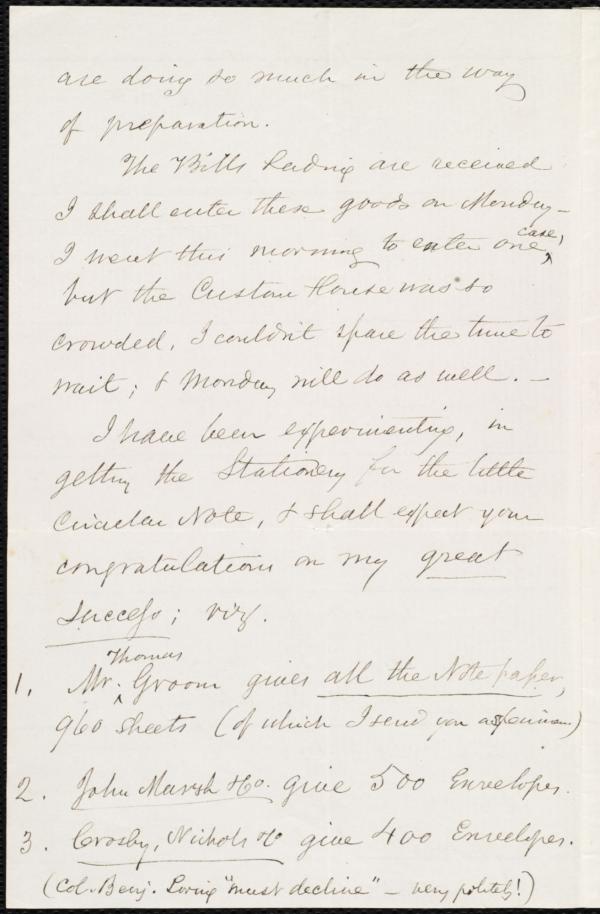 are doing so much in the way
of preparation.
The Bills Lading are received
I shall enter these goods on Monday –
I went this morning to enter one case,
but the Custom House was so
crowded, I couldn't spare the time to
wait; & Monday will do as well. –
I have been experimenting, in
getting the Stationery for the little
Circular Note, & shall expect your
congratulations on my great
success; viz.
1. Mr. Thomas Groom gives all the Note paper,
960 sheets (of which I send you a specimen)
2. John Marsh & Co. give 500 Envelopes.
3. Crosby, Nichols & Co give 400 Envelopes.
(Col. Benj. Loring "must decline" – very politely!)